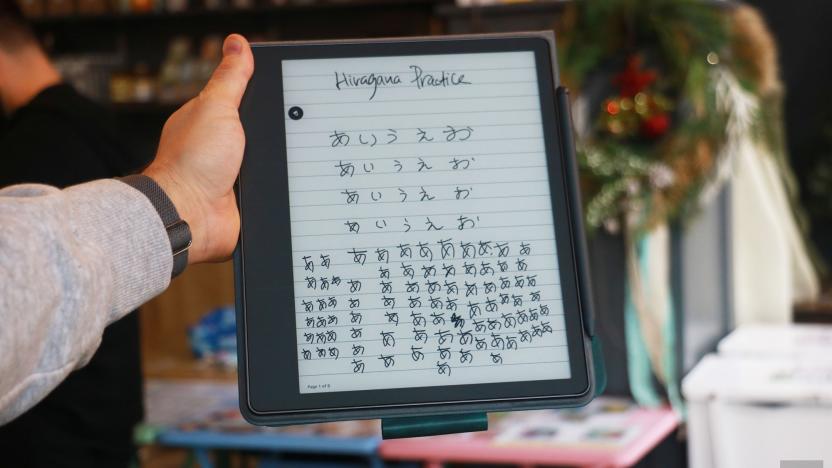 Hiragana Practice
あ い う え お
あ い う え お
あ い う え お
あ い う え お
ああ あ あ あ あ あ あ あ あ あ
あああ あ あ あ あ あ あ あ あ あ
あああ あ あ あ あ あ あ あ あ あ あ あ
あああ あ あ あ あ あ あ あ あ あ あ
あああ あ あ あ あ あ あ あ あ あ
あああ あ あ あ あ あ あ あ あ あ
あ あ あ あ あ
あ あ
Page 1 of 8